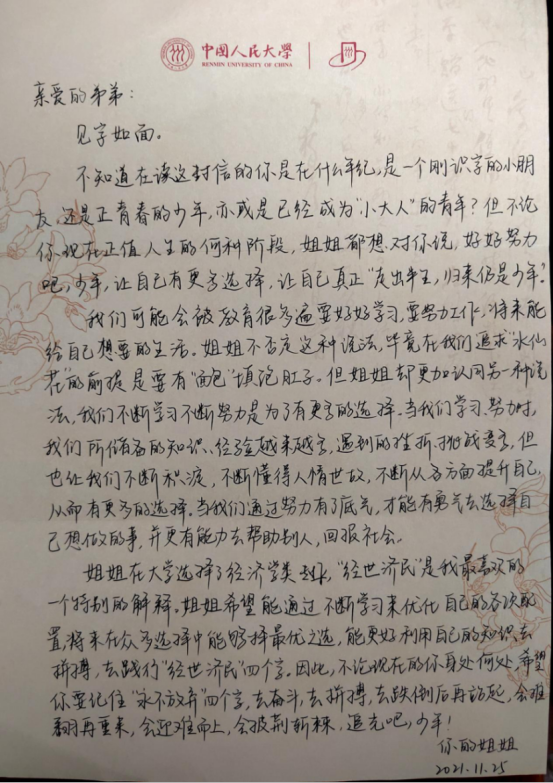 中国人民大学
RENMIN UNIVERSITY OF CHINA
亲爱的弟弟：
见字如面。
不知道在读这封信的你是在什么年纪，是一个刚识字的小朋
友，还是正青春的少年，亦或是已经成为“小大人”的青年？但不论
你现在正值人生的何种阶段，姐姐都想对你说，好好努力
吧，少年，让自己有更多选择，让自己真正“走出半生，归来仍是少年”。
我们可能会被教育很多遍要好好学习，要努力工作，将来能
给自己想要的生活。姐姐不否定这种说法，毕竟在我们追求“水仙
花”的前提是要有“面包”填饱肚子。但姐姐却更加认同另一种说
法，我们不断学习不断努力是为了有更多的选择。当我们学习、努力时，
我们所储备的知识、经验越来越多，遇到的挫折、挑战变多，但
也让我们不断积淀，不断懂得人情世故，不断从各方面提升自己，
从而有更多的选择。当我们通过努力有了底气，才能有勇气去选择自
己想做的事，并更有能力去帮助别人，回报社会。
姐姐在大学选择了经济学类专业，“经世济民”是我最喜欢的
一个特别的解释。姐姐希望能通过不断学习来优化自己的各项配
置，将来在众多选择中能够择最优之选，能更好利用自己的知识去
拼搏，去践行“经世济民”四个字。因此，不论现在的你身处何处，希望
你要记住“永不放弃”四个字，去奋斗，去拼搏，去跌倒后再站起，会推
翻再重来，会迎难而上，会披荆斩棘。追光吧，少年！
你的姐姐
2021.11.25